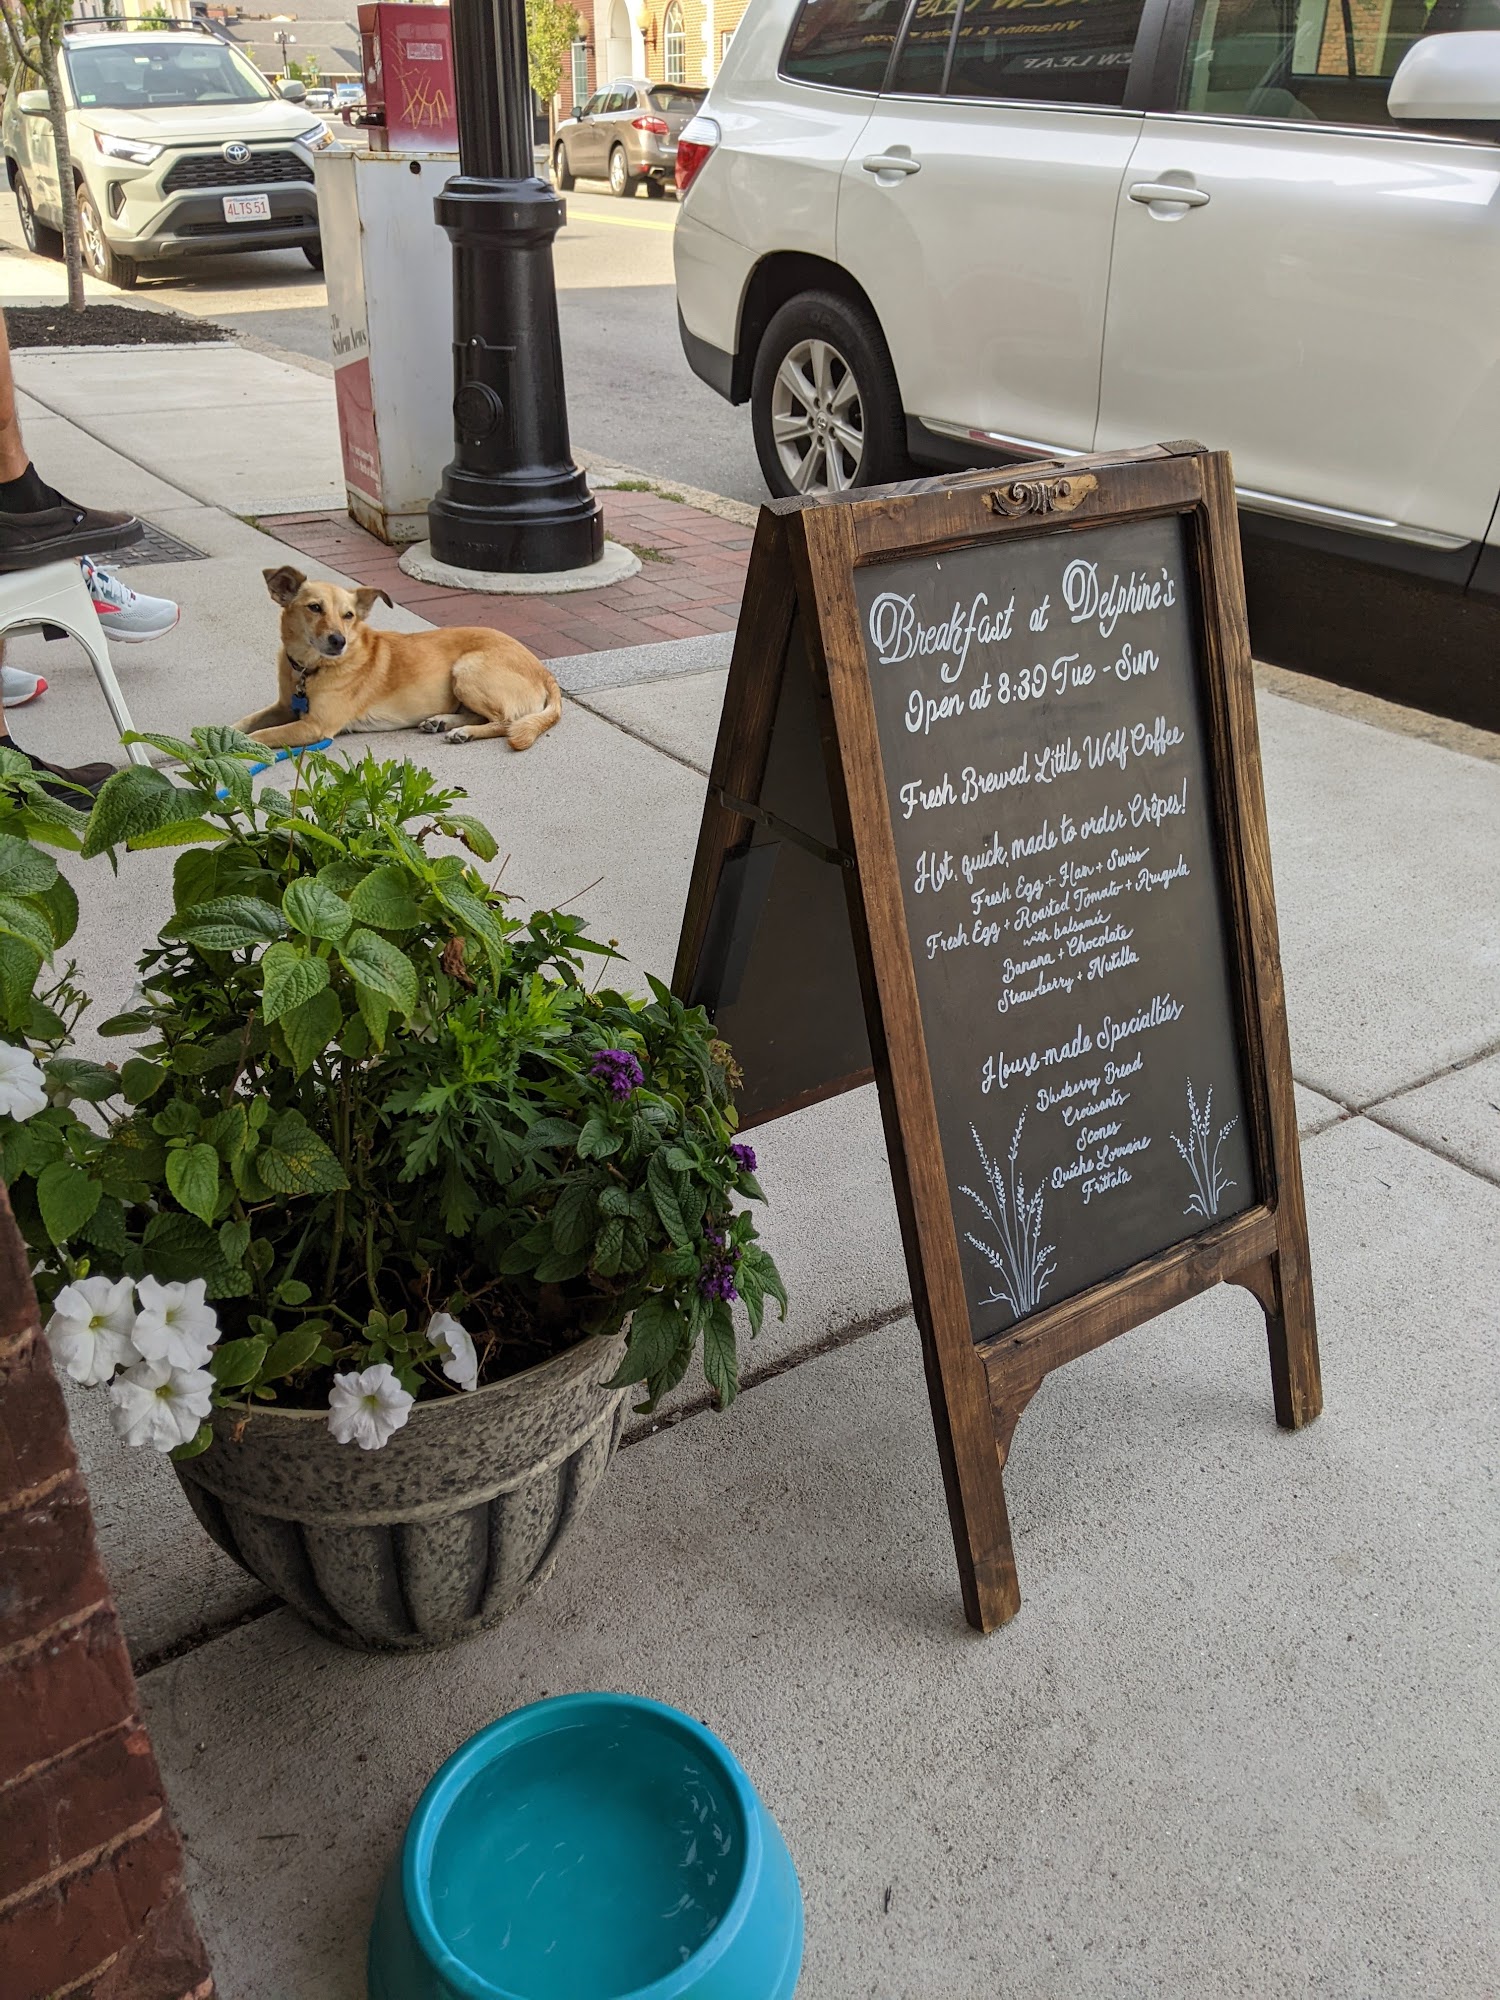 Vitamins & Natural
NEW LEAF
4LTS 51
The
Salem News
Breakfast at Delphine's
Open at 8:30 Tue - Sun
Fresh Brewed Little Wolf Coffee
Hot, quick, made to order Crêpes!
Fresh Egg + Ham + Swiss
Fresh Egg + Roasted Tomato + Arugula
with balsamic
Banana + Chocolate
Strawberry + Nutella
House-made Specialties
Blueberry Bread
Croissants
Scones
Quiche Lorraine
Frittata